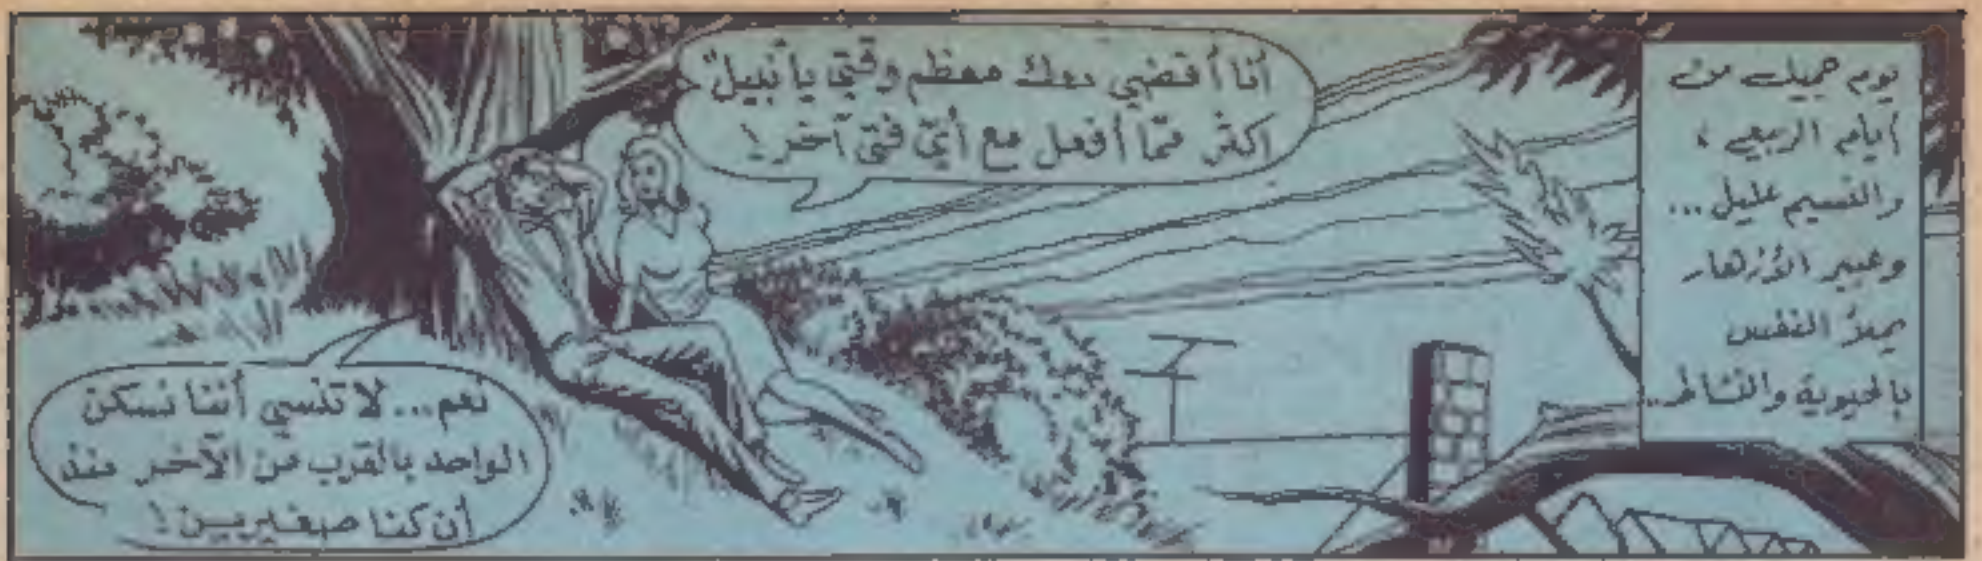 يوم جميل من
أيام الربيع ،
والنسيم عليل ...
وعبير الأزهار
يملأ النفس
بالحيوية والنشاط ..
أنا أقضي معك معظم وقتي يا نبيل
اكثر ممّا أفعل مع أيّ فتى آخر !
نعم ... لا تنسي أننا نسكن
الواحد بالقرب من الآخر منذ
أن كنا صغيرين !